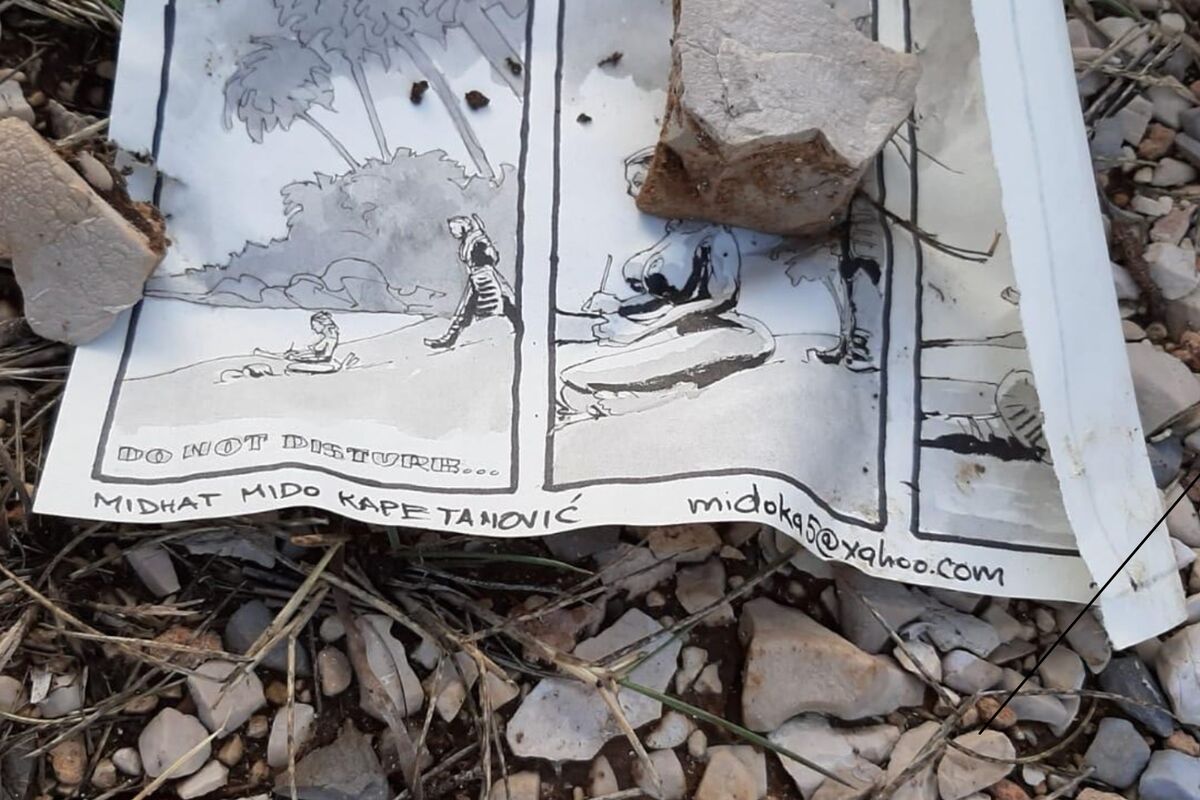 DO NOT DISTURB...
MIDHAT MIDO KAPETANOVIĆ
midoka5@yahoo.com